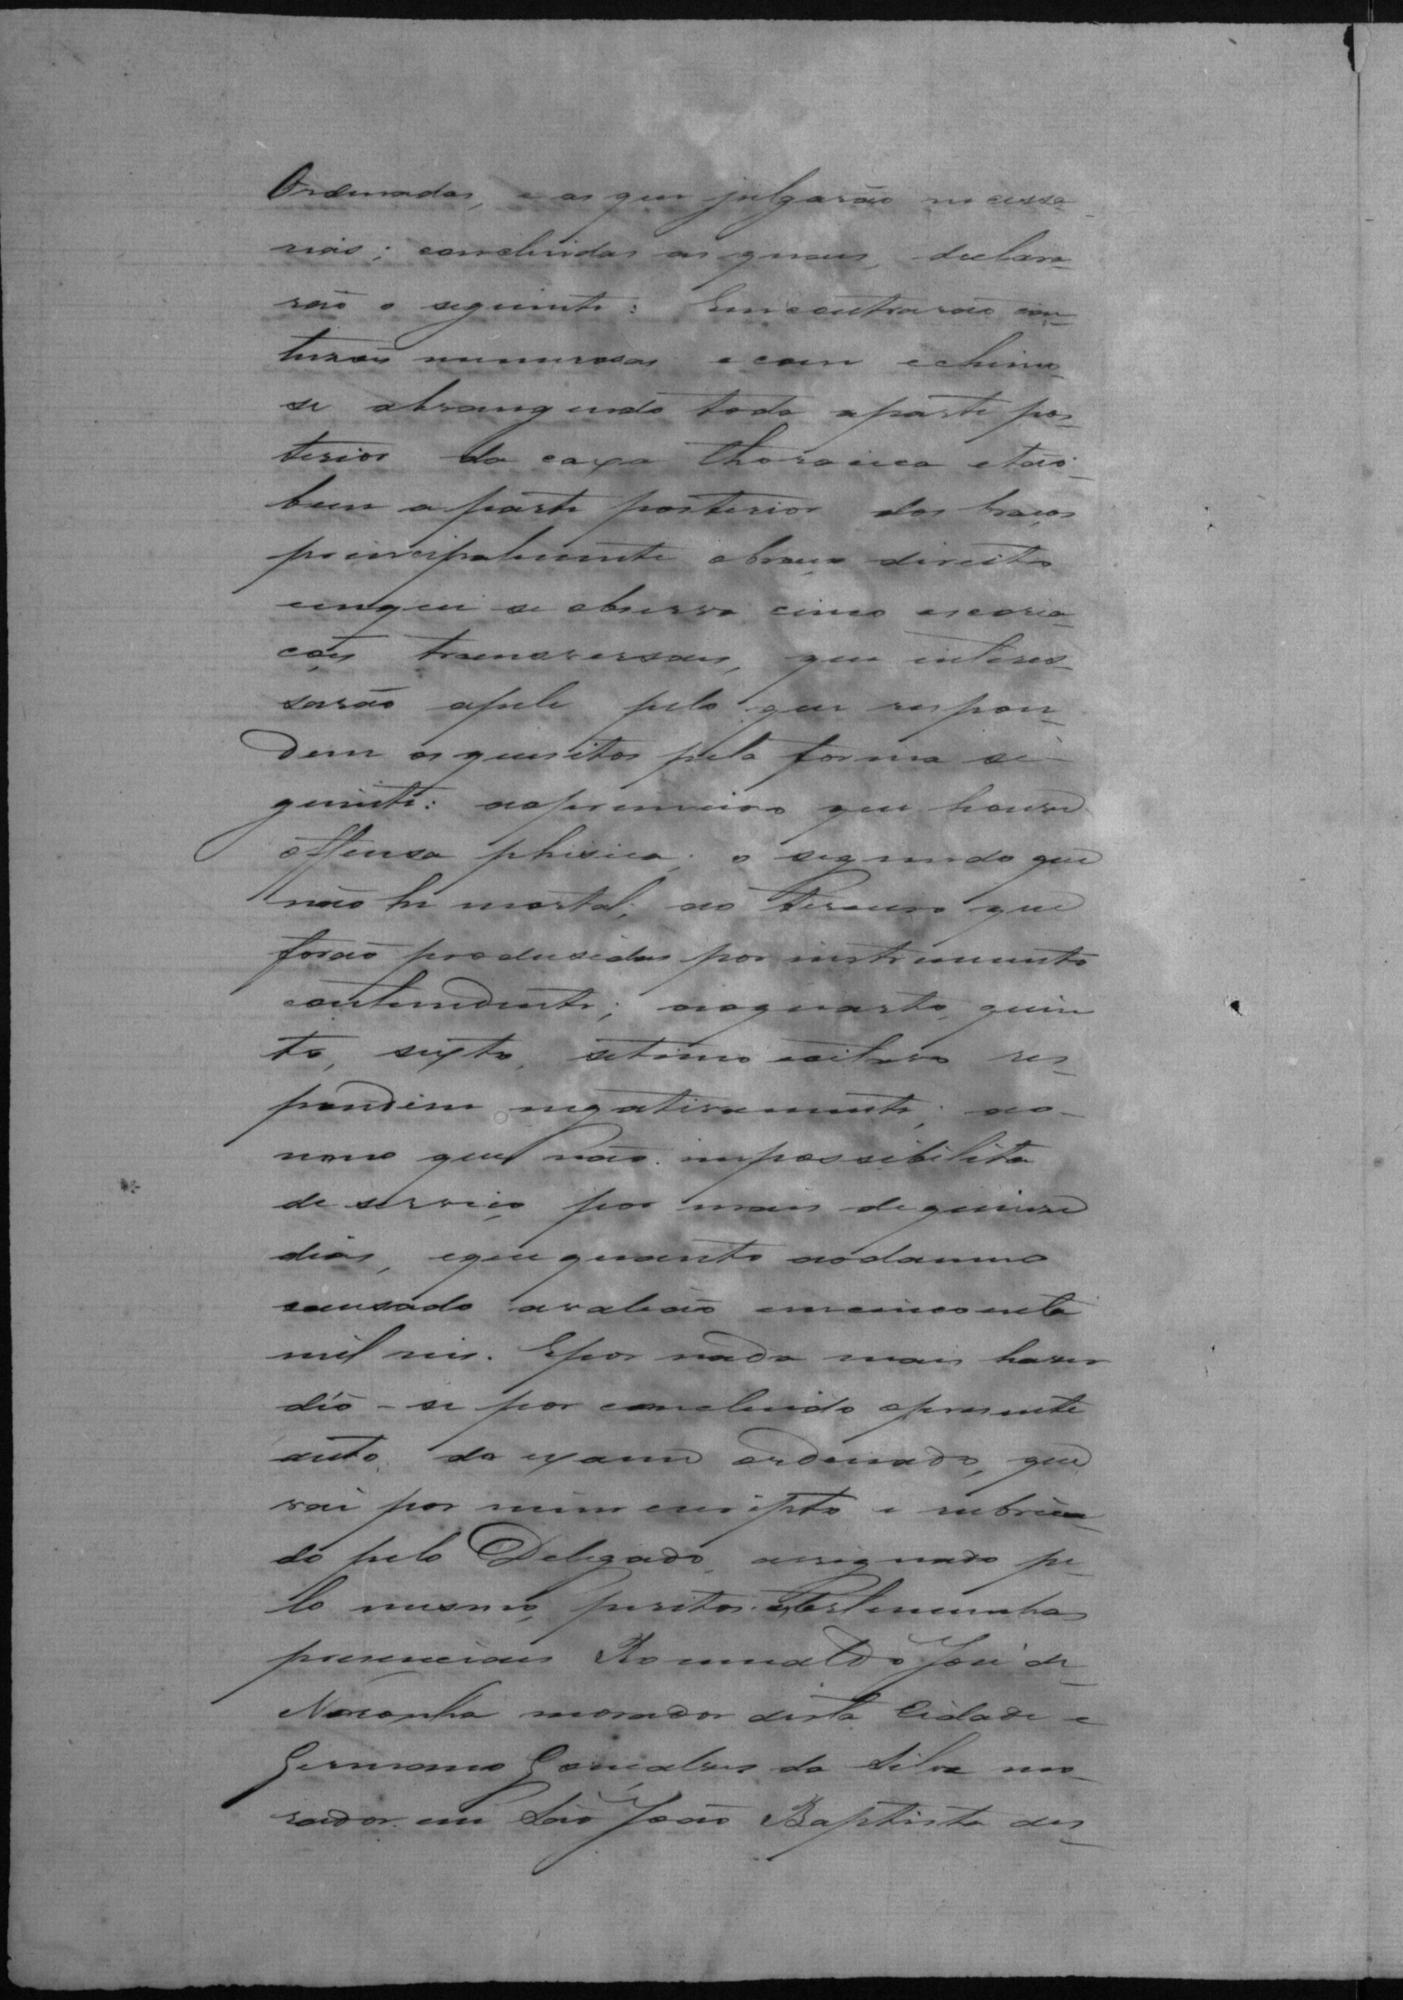 Ordenadas, e as que julgarão necessa-
rias; concluidas as quaes, declara-
rão o seguinte: Encontrarão con-
tusões numerosas e com echimo-
se abrangendo toda a parte pos-
terior da caxa thoraxica e tão
bem a parte posterior dos braços
principalmente o braço direito
em que se observa cinco escoria-
ções transversaes, que interes-
sarão a pele pelo que respon-
dem os quesitos pela forma se-
guinte: ao primeiro que houve
offensa phisica; o segundo que
não he mortal; ao terceiro que
forão produsidas por instrumento
contundente; ao quarto, quin
to, sexto, setimo e oitavo res-
pondem negativamente; ao
nono que não impossibilita
de serviço por mais de quinze
dias, e que quanto ao damno
causado avalião em cincoenta
mil reis. E por nada mais haver
dêo-se por concluido o presente
auto do exame ordenado, que
vai por mim escripto e rubrica-
do pelo Delegado, assignado pe-
lo mesmo, peritos e testemunhas
presenciaes Romualdo José de
Noronha morador desta Cidade e
Germano Gonçalves da Silva mo-
rador em São João Baptista des-